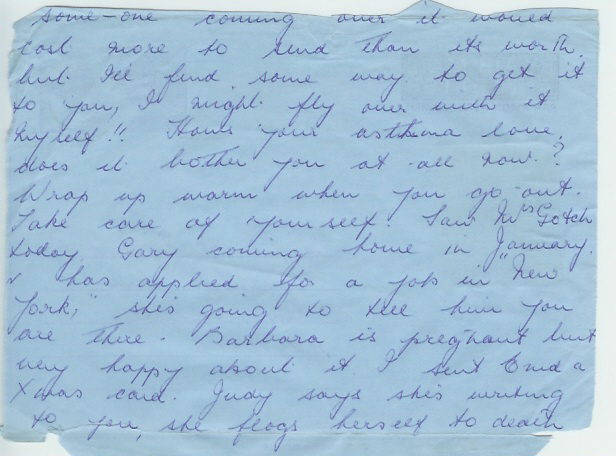 some-one coming over it would
cost more to send than its worth.
but I'll find some way to get it
to you, I might fly over with it
myself!! Hows your asthma love,
does it bother you at all now?
Wrap up warm when you go out.
Take care of yourself. Saw Mrs Gotch
today, Gary coming home in January.
& has applied for a job in "New
York," she's going to tell him you
are there. Barbara is pregnant but
very happy about it I sent Enid a
Xmas card. Judy says she's writing
to you, she flogs herself to death